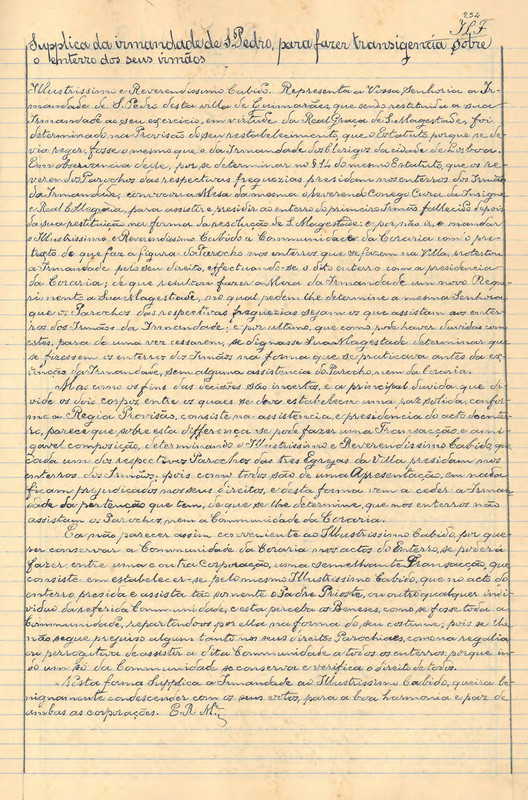 252
J.L.F
Supplica da irmandade de S. Pedro, para fazer transigencia sobre
o enterro dos seus irmãos
Illustrissimo e Reverendissimo Cabido. Representa a Vossa Senhoria a Ir-
mandade de S. Pedro desta villa de Guimarães, que sendo restituida a sua
Irmandade ao seu exercicio, em virtude da Real Graça de S. Magestade, foi
determinado na Provisão do seu restabelecimento, que o Estatuto, porque se de-
via reger, fosse o mesmo que o da Irmandade dos Clerigos da cidade de Lisboa.
Em observancia deste, por se determinar no § 14 do mesmo Estatuto, que os re-
verendos Parochos das respectivas freguezias presidam nos enterros dos Irmãos
da Irmandade, convocou a Mesa da mesma o Reverendo Conego Cura da Insigne
e Real Collegiada, para assistir e presidir ao enterro do primeiro Irmão fallecido depois
da sua restituição na forma da resolução de S. Magestade: e por não ir, e mandar
o Illustrissimo e Reverendissimo Cabido a Communidade da Coraria com o pre-
texto de que faz a figura do Parocho nos enterros que se fazem na Villa, protestou
a Irmandade pelo seu direito, effectuando-se o dito enterro com a presidencia
da Coraria; de que resultou fazer a Mesa da Irmandade um novo Reque-
rimento a Sua Magestade, no qual pedem lhe determine a mesma Senhora
que os Parochos das respectivas freguezias sejam os que assistam aos enter-
ros dos Irmãos da Irmandade; e por ultimo, que como pode haver duvidas com
estes, para de uma vez cessarem, se dignasse Sua Magestade determinar que
se fizessem os enterros dos Irmãos na forma que se praticava antes da ex-
tincção da Irmandade, sem alguma assistencia do Parocho, nem da Coraria.
Mas como os fins das decisões são incertos, e a principal duvida que di-
vide os dois corpos, entre os quaes se deve estabelecer uma paz solida, confor-
me a Regia Provisão, consiste na assistencia, e presidencia do acto do enter-
ro, parece que sobre esta differença se pode fazer uma Transacção, e ami-
gavel composição, determinando o Illustrissimo e Reverendissimo Cabido, que
cada um dos respectivos Parochos das tres Egrejas da Villa presidam nos
enterros dos Irmãos; pois como todos são de uma Apresentação, em nada
ficam prejudicados nos seus direitos, e desta forma vem a ceder a Irman-
dade da pertenção que tem, de que se lhe determine, que nos enterros não
assistam os Parochos, nem a Communidade da Coraria.
E a não parecer assim conveniente ao Illustrissimo Cabido, por que-
rer conservar a Communidade da Coraria nos actos do Enterro, se poderá
fazer entre uma e outra Corporação, uma semelhante Transacção, que
consiste em estabelecer-se pelo mesmo Illustrissimo Cabido, que no acto do
enterro presida e assista tão somente o Padre Prioste, ou outro qualquer indi-
viduo da referida Communidade, e esta perceba os Beneses, como se fosse toda a
Communidade, repartindo-os por ella na forma do seu costume; pois se lhe
não segue prejuizo algum tanto nos seus direitos Parochiaes, como na regalia
ou perrogativa de assistir a dita Communidade a todos os enterros, porque in-
do um só da Communidade se conserva e verifica o direito de todos.
Nesta forma Supplica a Irmandade ao Illustrissimo Cabido, queira be-
nignamente condescender com os seus votos, para a boa harmonia e paz de
ambas as corporações. E. R. M.ce